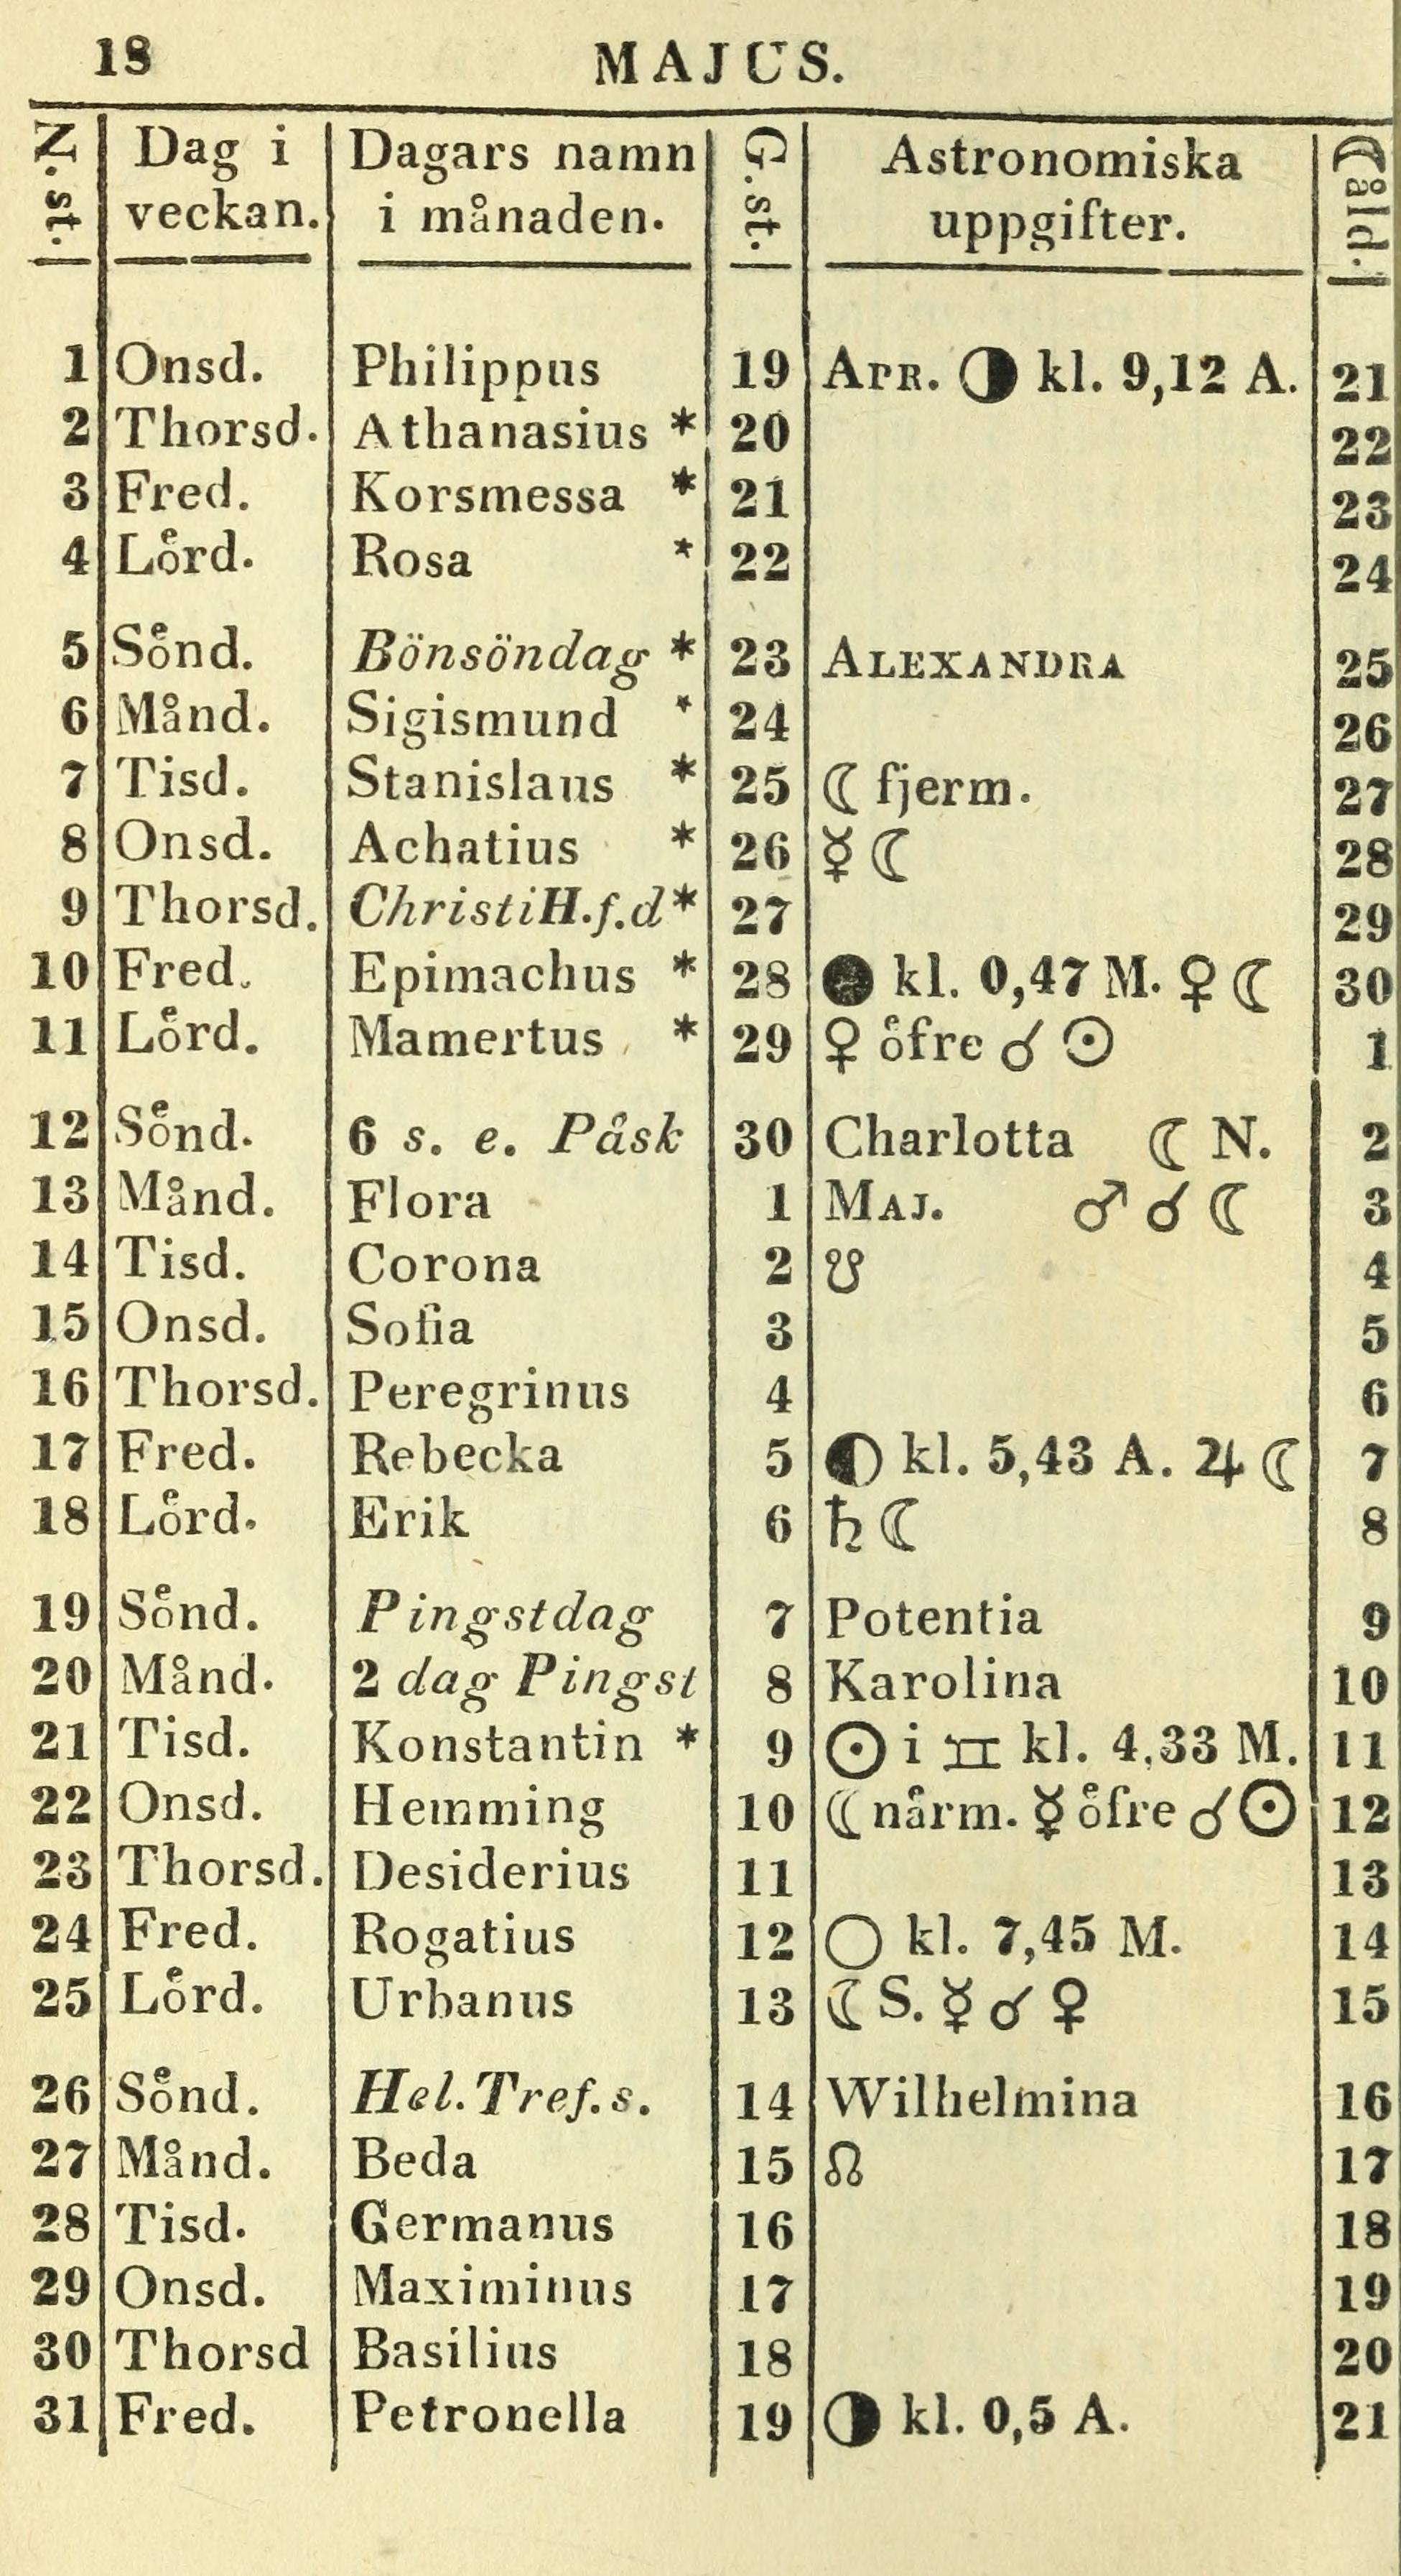 18 MAJUS.
N. st. Dag i veckan. Dagars namn i månaden. G. st. Astronomiska uppgifter. ☾åld.
1 Onsd. Philippus 19 APR. ◑ kl. 9,12 A. 21
2 Thorsd. Athanasius * 20 22
3 Fred. Korsmessa * 21 23
4 Lo̊rd. Rosa * 22 24
5 So̊nd. Bönsöndag * 23 ALEXANDRA 25
6 Månd. Sigismund * 24 26
7 Tisd. Stanislaus * 25 ☾ fjerm. 27
8 Onsd. Achatius * 26 ☿ ☾ 28
9 Thorsd. Christi H.f.d * 27 29
10 Fred. Epimachus * 28 ● kl. 0,47 M. ♀ ☾ 30
11 Lo̊rd. Mamertus * 29 ♀ o̊fre ☌ ☉ 1
12 So̊nd. 6 s. e. Påsk 30 Charlotta ☾ N. 2
13 Månd. Flora 1 MAJ. ♂ ☌ ☾ 3
14 Tisd. Corona 2 ☋ 4
15 Onsd. Sofia 3 5
16 Thorsd. Peregrinus 4 6
17 Fred. Rebecka 5 ◐ kl. 5,43 A. ♃ ☾ 7
18 Lo̊rd. Erik 6 ♄ ☾ 8
19 So̊nd. Pingstdag 7 Potentia 9
20 Månd. 2 dag Pingst 8 Karolina 10
21 Tisd. Konstantin * 9 ☉ i ♊ kl. 4,33 M. 11
22 Onsd. Hemming 10 ☾ nårm. ☿ o̊fre ☌ ☉ 12
23 Thorsd. Desiderius 11 13
24 Fred. Rogatius 12 ○ kl. 7,45 M. 14
25 Lo̊rd. Urbanus 13 ☾ S. ☿ ☌ ♀ 15
26 So̊nd. Hel. Tref. s. 14 Wilhelmina 16
27 Månd. Beda 15 ☊ 17
28 Tisd. Germanus 16 18
29 Onsd. Maximinus 17 19
30 Thorsd Basilius 18 20
31 Fred. Petronella 19 ◑ kl. 0,5 A. 21